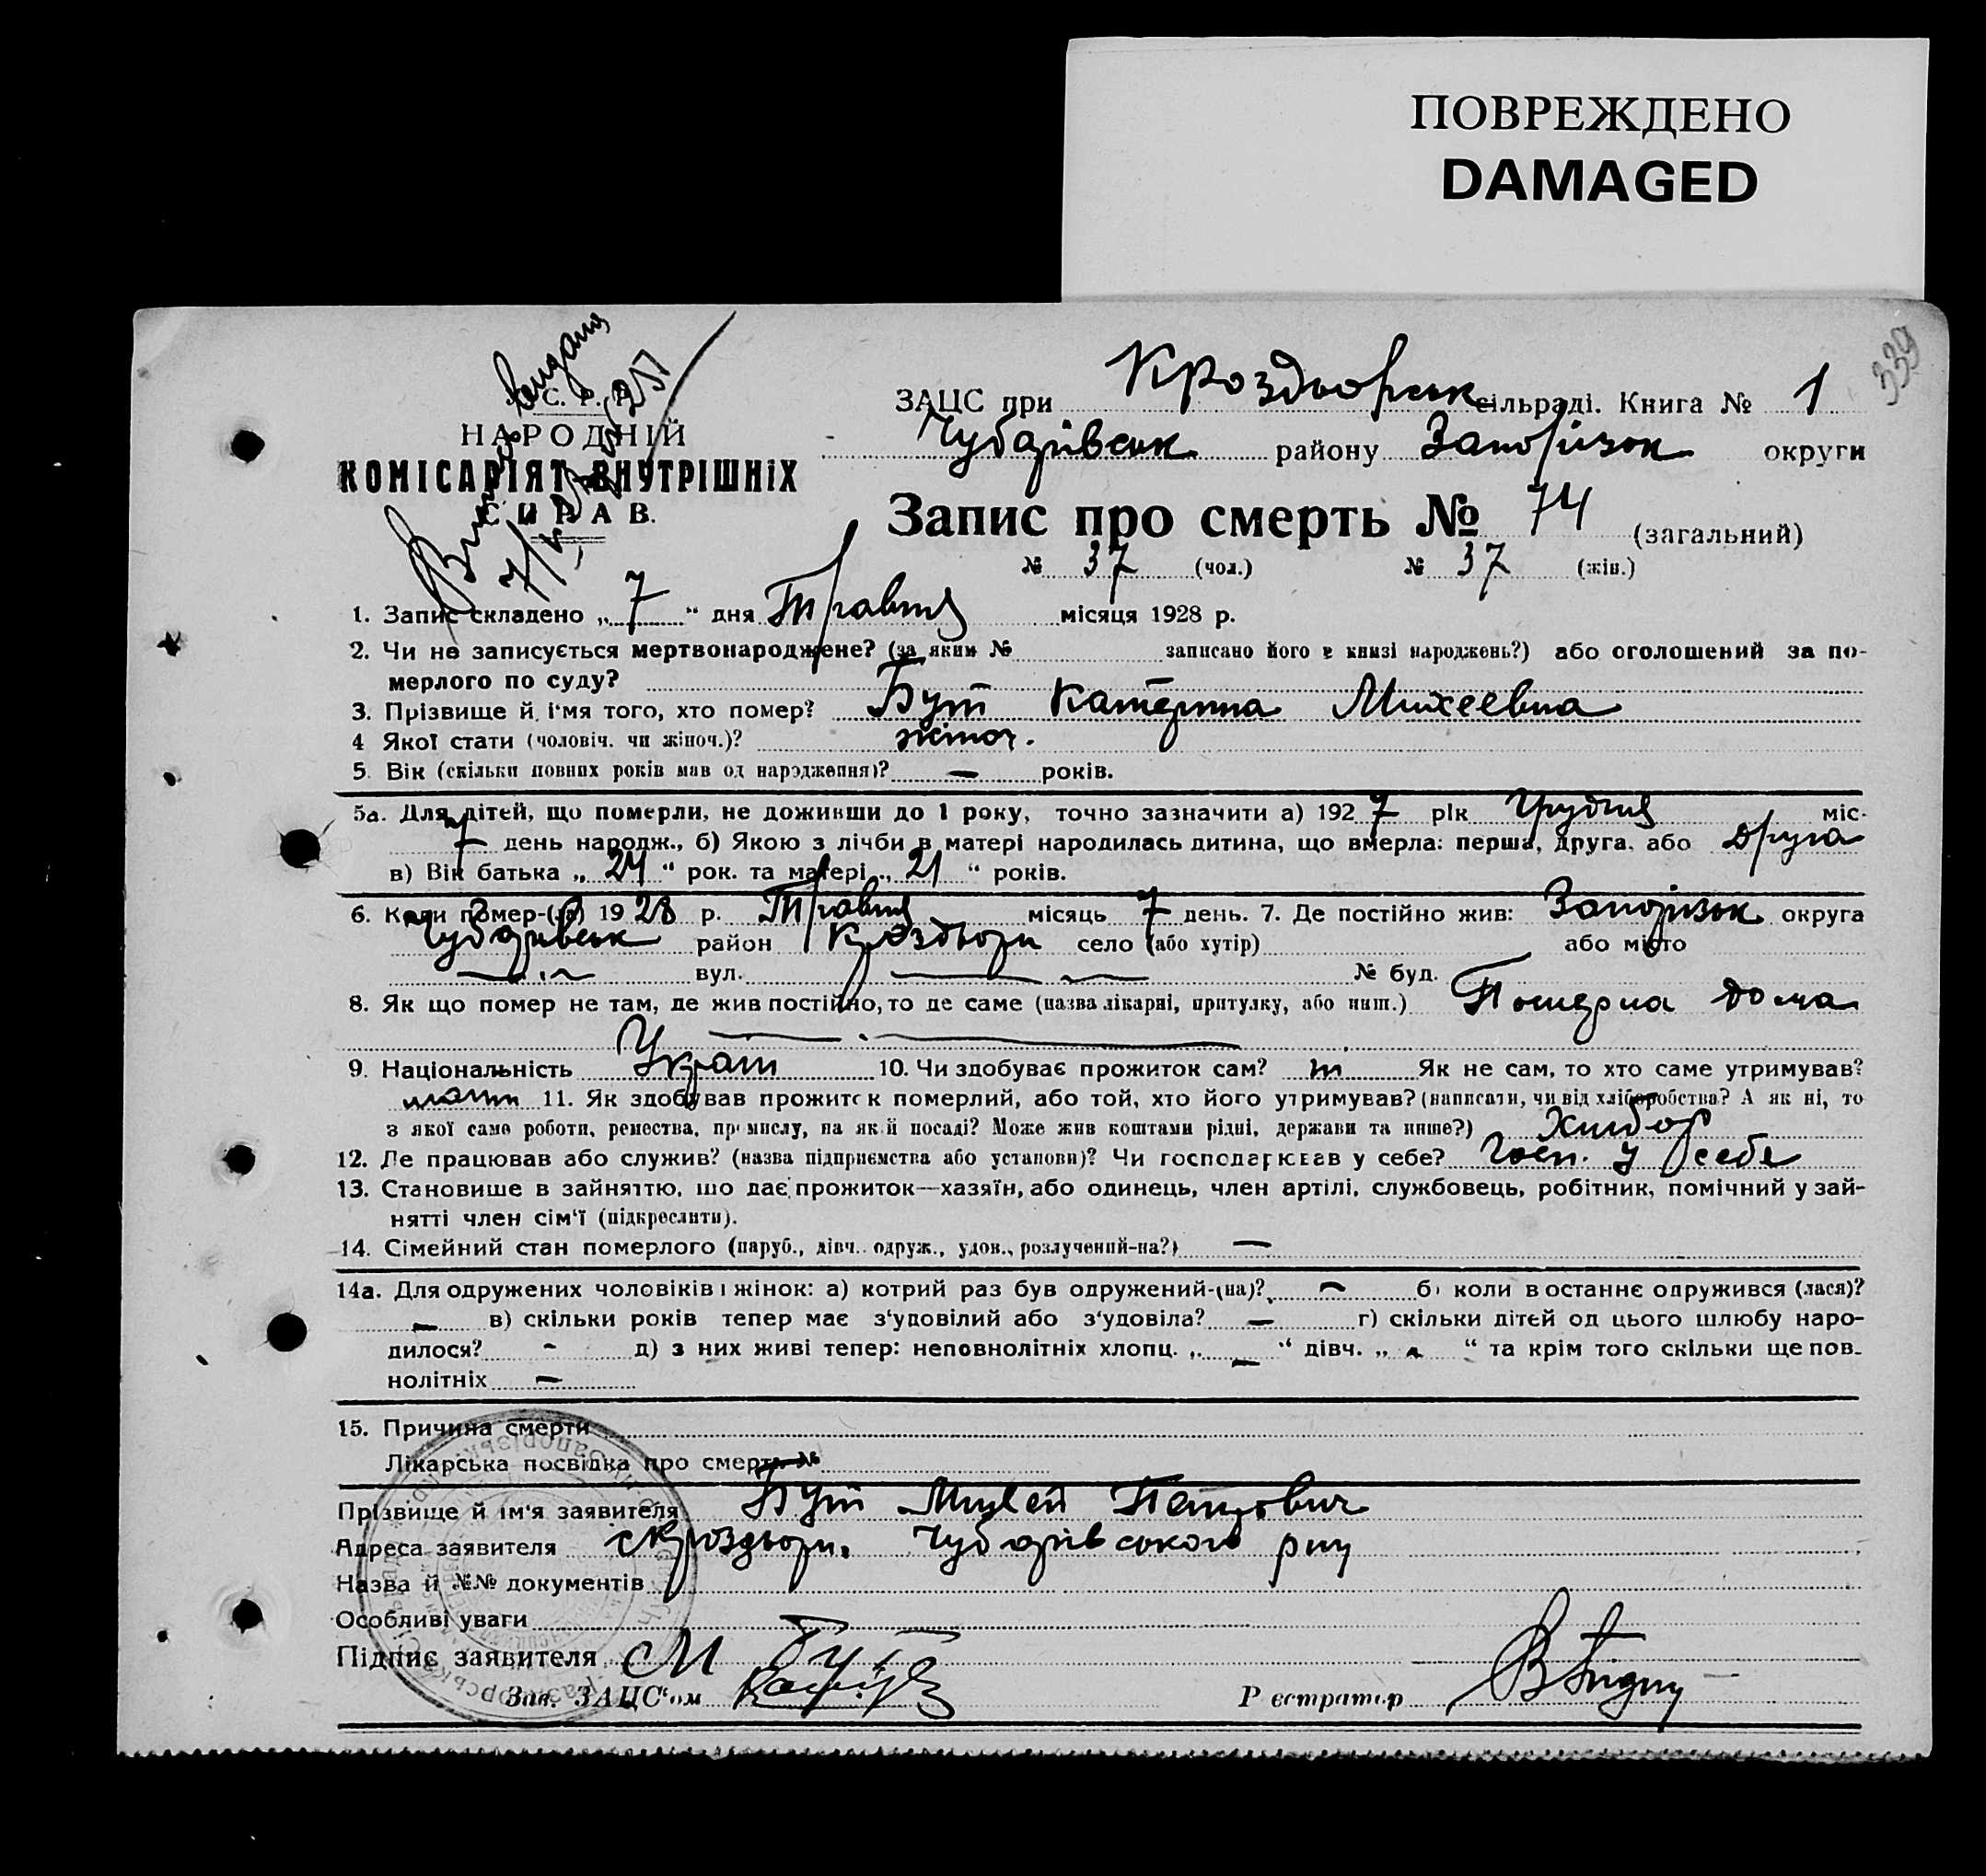 ПОВРЕЖДЕНО
DAMAGED
339
С. Р. Р.
НАРОДНІЙ
КОМІСАРІЯТ ВНУТРІШНІХ
СПРАВ.
ЗАЦС при Кроздворськ сільраді. Книга № 1
Чубарівськ району Запорізьк округи
Запис про смерть № 74 (загальний)
№ 37 (чол.) № 37 (жін.)
1. Запис складено „ 7 “ дня Травня місяця 1928 р.
2. Чи не записується мертвонароджене? (за яким № записано його в книзі народжень?) або оголошений за по-
мерлого по суду?
3. Прізвище й ім'я того, хто помер? Бут Катерина Михеевна
4 Якої стати (чоловіч. чи жіноч.)? жіноч.
5. Вік (скільки повних років мав од народження)? — років.
5а. Для дітей, що померли, не доживши до 1 року, точно зазначити а) 1927 рік Грудня міс.
7 день народж., б) Якою з лічби в матері народилась дитина, що вмерла: перша, друга, або друга
в) Вік батька „ 24 “ рок. та матері „ 21 “ років.
6. Коли помер-(ла) 1928 р. Травня місяць 7 день. 7. Де постійно жив: Запорізьк округа
Чубарівськ район Кроздвори село (або хутір) або місто
вул. № буд.
8. Як що помер не там, де жив постійно, то де саме (назва лікарні, притулку, або инш.) Померла дома
9. Національність Украт 10. Чи здобуває прожиток сам? ні Як не сам, то хто саме утримував?
мати 11. Як здобував прожиток померлий, або той, хто його утримував? (написати, чи від хліборобства? А як ні, то
з якої саме роботи, ремества, промислу, на якій посаді? Може жив коштами рідні, держави та инше?) Хлибор
12. Де працював або служив? (назва підприємства або установи)? Чи господарював у себе? Госп. у себе
13. Становище в зайняттю, що дає прожиток—хазяїн, або одинець, член артілі, службовець, робітник, помічний у зай-
нятті член сім'ї (підкреслити).
14. Сімейний стан померлого (паруб., дівч. одруж., удов., розлучений-на?) —
14а. Для одружених чоловіків і жінок: а) котрий раз був одружений-(на)? — б) коли в останнє одружився (лася)?
— в) скільки років тепер має з'удовілий або з'удовіла? — г) скільки дітей од цього шлюбу наро-
дилося? - д) з них живі тепер: неповнолітніх хлопц. „ — “ дівч. „ - “ та крім того скільки ще пов-
нолітніх —
15. Причина смерти
Лікарська посвідка про смерть №
Прізвище й ім'я заявителя Бут Михей Петрович
Адреса заявителя с Кроздвори. Чубарівського р-ну
Назва й №№ документів
Особливі уваги
Підпис заявителя М Бут
Зав. ЗАЦС'ом
Реєстратор